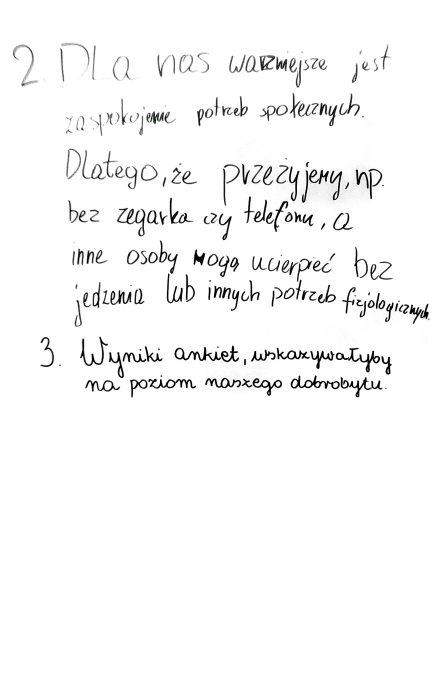 2. Dla nas ważniejsze jest
zaspokojenie potrzeb społecznych.
Dlatego, że przeżyjemy, np.
bez zegarka czy telefonu, a
inne osoby mogą ucierpieć bez
jedzenia lub innych potrzeb fizjologicznych.
3. Wyniki ankiet, wskazywałyby
na poziom naszego dobrobytu.